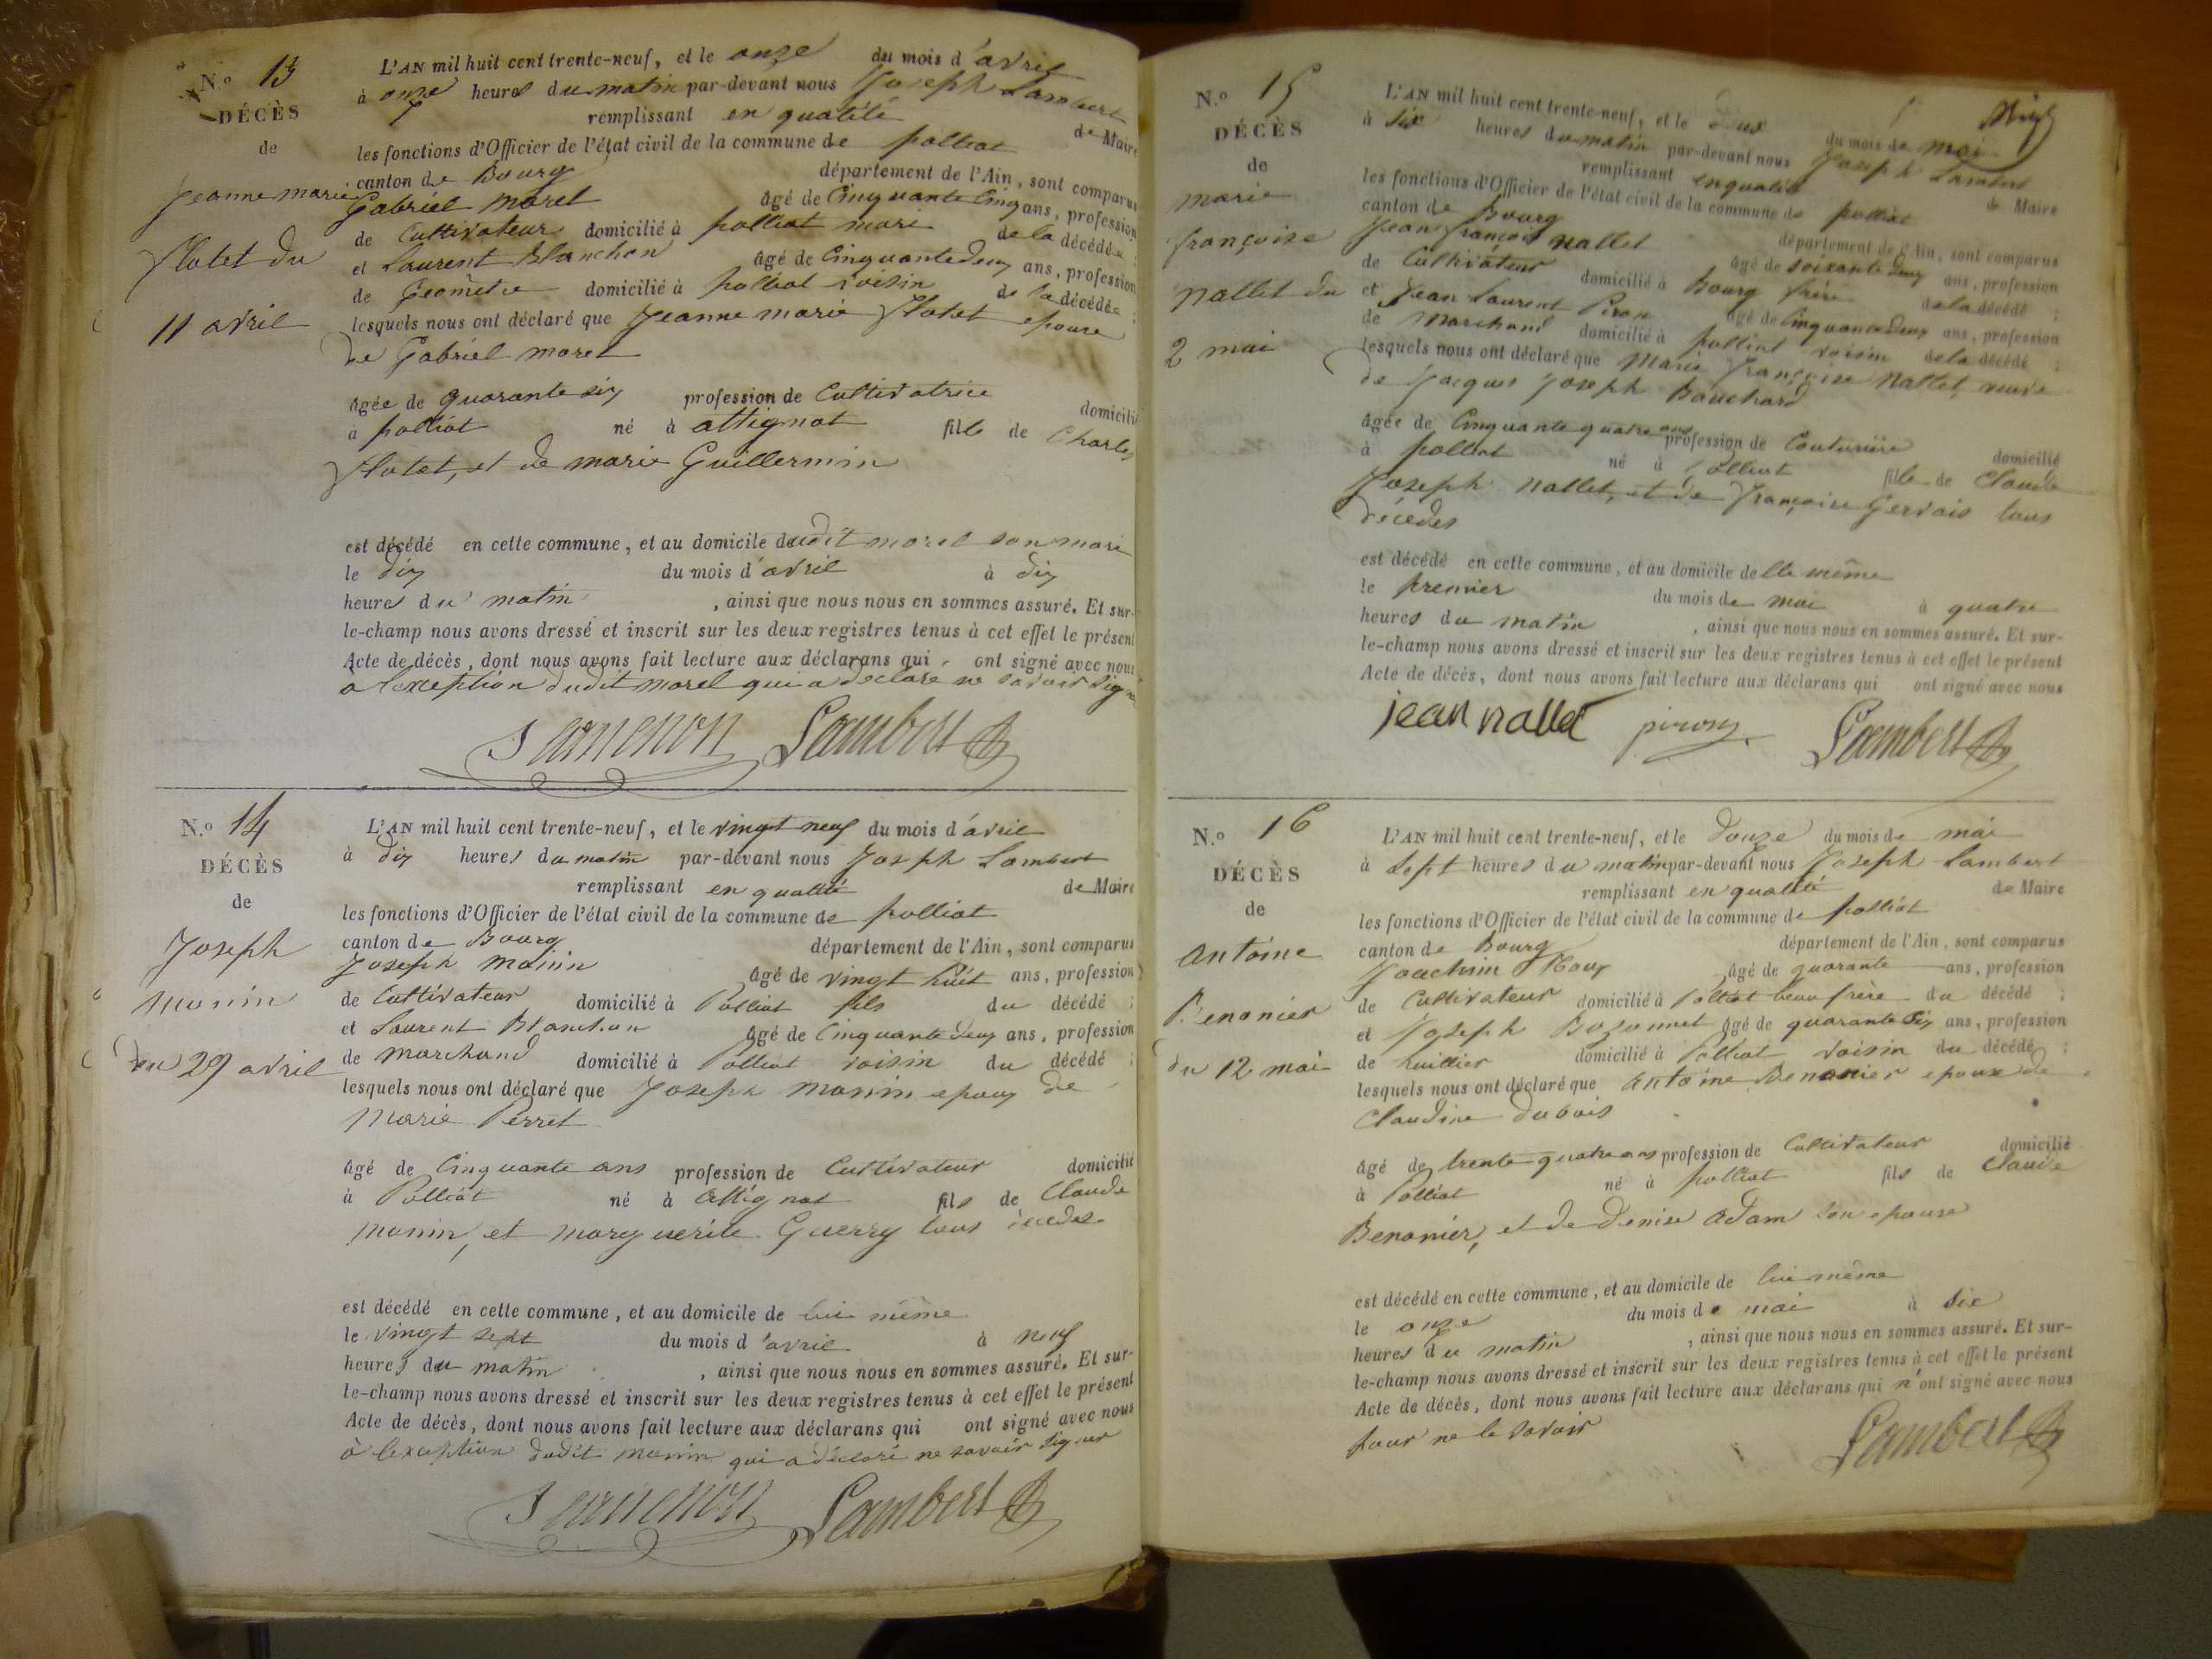 N.o 13
DÉCÈS
de
Jeanne marie
flotet du
11 avril
L'AN mil huit cent trente-neuf, et le onze du mois d'avril
à onze heures du matin par-devant nous Joseph Lambert
remplissant en qualité de Maire
les fonctions d'Officier de l'état civil de la commune de polliat
canton de Bourg département de l'Ain, sont comparus
Gabriel morel âgé de Cinquante Cinq ans, profession
de Cultivateur domicilié à polliat mari de la décédée ;
et Laurent Blanchon âgé de Cinquante deux ans, profession
de Geomètre domicilié à polliat voisin de la décédée ;
lesquels nous ont déclaré que Jeanne marie flotet epouse
de Gabriel morel
âgée de quarante six profession de Cultivatrice domicilié
à polliat né à attignat fille de Charles
flotet, et de marie Guillermin
est décédé en cette commune, et au domicile dudit morel son mari
le dix du mois d'avril à dix
heures du matin , ainsi que nous nous en sommes assuré. Et sur-
le-champ nous avons dressé et inscrit sur les deux registres tenus à cet effet le présent
Acte de décès, dont nous avons fait lecture aux déclarans qui ont signé avec nous
à lexception dudit morel qui a declaré ne savoir signer
Lambert
N.o 14
DÉCÈS
de
Joseph
monin
du 29 avril
L'AN mil huit cent trente-neuf, et le vingt neuf du mois d'avril
à dix heures du matin par-devant nous Joseph Lambert
remplissant en qualité de Maire
les fonctions d'Officier de l'état civil de la commune de polliat
canton de Bourg département de l'Ain, sont comparus
Joseph monin âgé de vingt huit ans, profession
de Cultivateur domicilié à Polliat fils du décédé ;
et Laurent Blanchon âgé de Cinquante deux ans, profession
de marchand domicilié à Polliat voisin du décédé ;
lesquels nous ont déclaré que Joseph monin epoux de
Marie Perret
âgé de Cinquante ans profession de Cultivateur domicilié
à Polliat né à Attignat fils de Claude
monin, et marguerite Guerry tous décedes
est décédé en cette commune, et au domicile de lui même
le vingt sept du mois d'avril à neuf
heures du matin , ainsi que nous nous en sommes assuré. Et sur-
le-champ nous avons dressé et inscrit sur les deux registres tenus à cet effet le présent
Acte de décès, dont nous avons fait lecture aux déclarans qui ont signé avec nous
à lexception dudit monin qui a déclaré ne savoir signer
Lambert
N.o 15
DÉCÈS
de
marie
françoise
nallet du
2 mai
L'AN mil huit cent trente-neuf, et le deux du mois de mai
à six heures du matin par-devant nous Joseph Lambert
remplissant en qualité de Maire
les fonctions d'Officier de l'état civil de la commune de polliat
canton de Bourg département de l'Ain, sont comparus
Jean françois nallet âgé de soixante deux ans, profession
de Cultivateur domicilié à Bourg frère de la décédé ;
et Jean Laurent Piron âgé de Cinquante deux ans, profession
de marchand domicilié à polliat voisin de la décédé ;
lesquels nous ont déclaré que Marie françoise Nallet, veuve
de Jacques Joseph Bouchard
âgée de Cinquante quatre ans profession de Couturière domicilié
à polliat né à Polliat fille de Claude
Joseph nallet, et de françoise Gervais tous
décedes
est décédé en cette commune, et au domicile delle même
le premier du mois de mai à quatre
heures du matin , ainsi que nous nous en sommes assuré. Et sur-
le-champ nous avons dressé et inscrit sur les deux registres tenus à cet effet le présent
Acte de décès, dont nous avons fait lecture aux déclarans qui ont signé avec nous
jean nallet piron Lambert
N.o 16
DÉCÈS
de
antoine
Benonier
du 12 mai
L'AN mil huit cent trente-neuf, et le douze du mois de mai
à sept heures du matin par-devant nous Joseph Lambert
remplissant en qualité de Maire
les fonctions d'Officier de l'état civil de la commune de polliat
canton de Bourg département de l'Ain, sont comparus
Joachim âgé de quarante ans, profession
de Cultivateur domicilié à Polliat beau frère du décédé ;
et Joseph Bozonnet âgé de quarante six ans, profession
de huillier domicilié à Polliat voisin du décédé ;
lesquels nous ont déclaré que antoine Benonier epoux de
Claudine dubois
âgé de trente quatre ans profession de Cultivateur domicilié
à Polliat né à polliat fils de Claude
Benonier, et de denise adam son epouse
est décédé en cette commune, et au domicile de lui même
le onze du mois de mai à six
heures du matin , ainsi que nous nous en sommes assuré. Et sur-
le-champ nous avons dressé et inscrit sur les deux registres tenus à cet effet le présent
Acte de décès, dont nous avons fait lecture aux déclarans qui n'ont signé avec nous
pour ne le savoir
Lambert